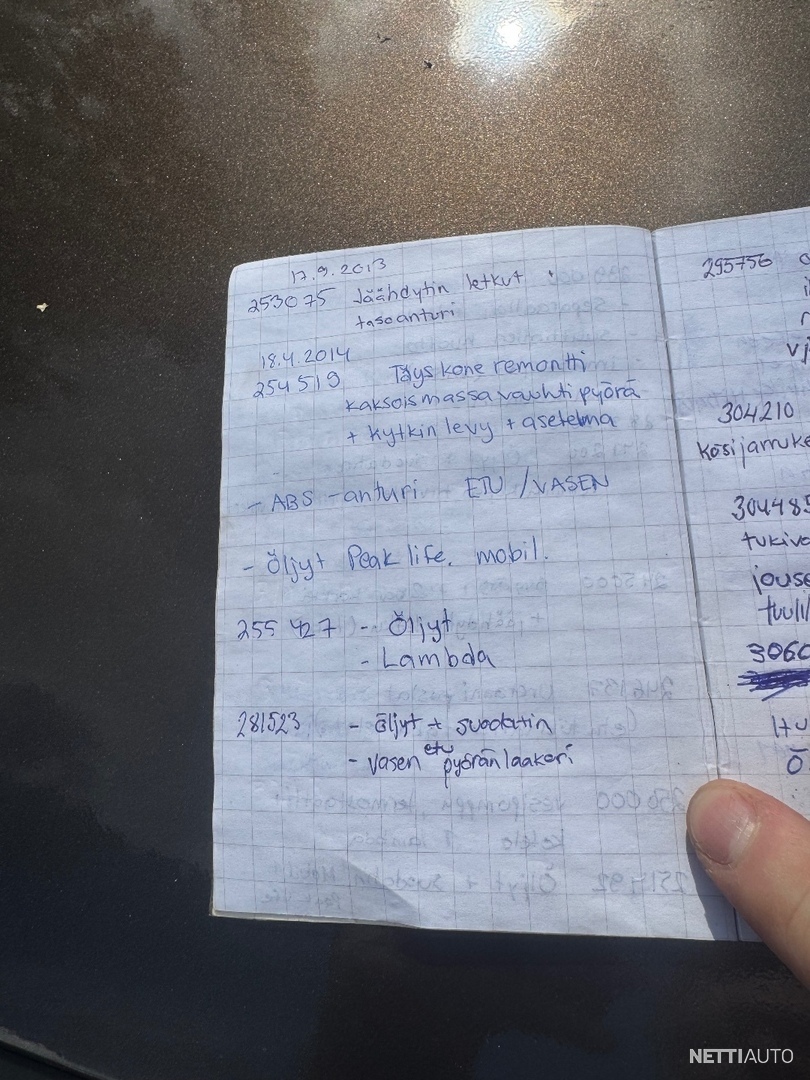 17.9.2013
253075 Jäähdytin letkut
tasoanturi
18.4.2014
254519 Täys kone remontti
kaksoismassavauhtipyörä
+ kytkin levy + asetelma
- ABS -anturi ETU /VASEN
- Öljyt Peak life. mobil.
255 427 - Öljyt
- Lambda
281523 - öljyt + suodatin
- vasen etu pyöränlaakeri
295756
304210
käsijarruke
304485
tukiva
jouse
tuuli
3060
NETTIAUTO